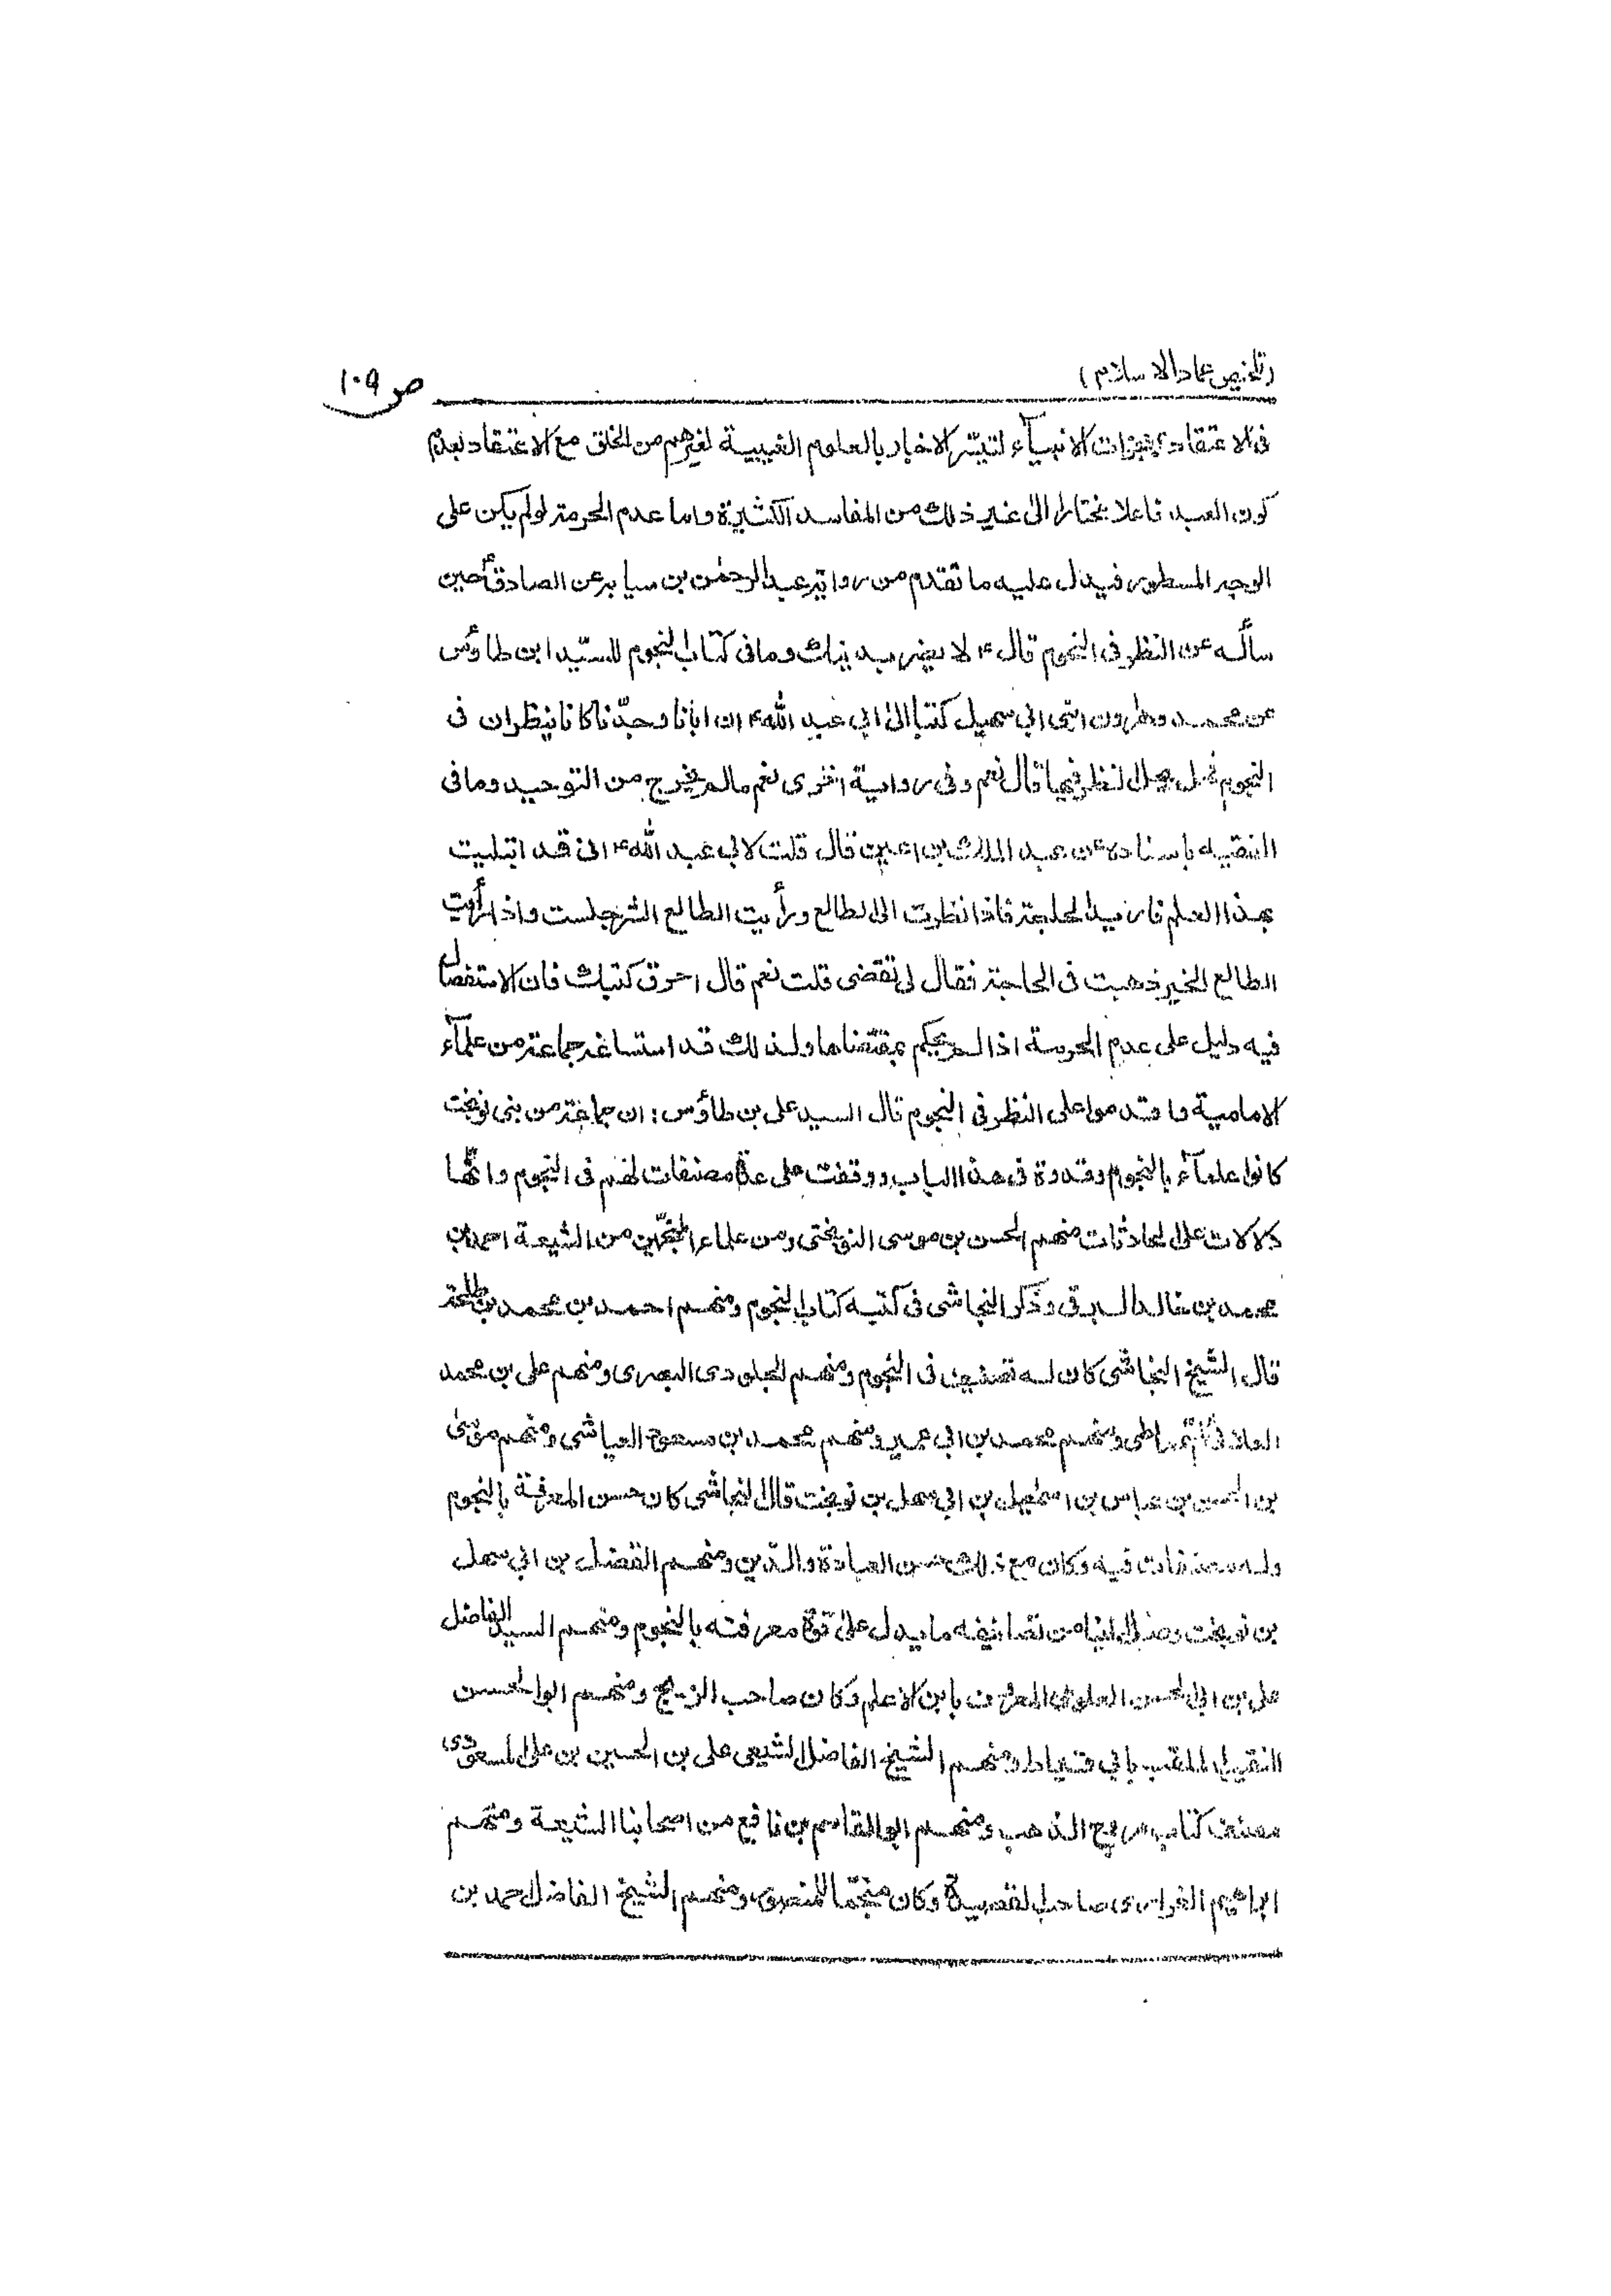 (تلخيص عماد الاسلام)
ص ١٠٩
فى الاعتقاد بمعجزات الانبيآء لتيسّر الاخبار بالعلوم الغيبية لغيرهم من الخلق مع الاعتقاد بعدم
كون العبد فاعلا مختارا الىٰ غير ذلك من المفاسد الكثيرة واما عدم الحرمة لو لم يكن على
الوجه المسطور فيدل عليه ما تقدم من رواية عبد الرحمٰن بن سيابه عن الصادقؑ حين
سألـه عن النظر فى النجوم قالؑ لا يضر بدينك وما فى كتاب النجوم للسّيد ابن طاؤس
عن محمد وهارون ابنى ابى سهل كتبا الىٰ ابى عبد اللهؑ ان ابانا وجدّنا كانا ينظران فى
النجوم فهل يحل النظر فيها قال نعم وفى رواية اخرى نعم مالم يخرج من التوحيد وما فى
الفقيه باسناده عن عبد الملك بن اعين قال قلت لابى عبد اللهؑ انى قد ابتليت
بهذا العلم فاريد الحاجة فاذا نظرت الى الطالع ورأيت الطالع الشر جلست واذا رأيت
الطالع الخير ذهبت فى الحاجة فقال لى تقضى قلت نعم قال احرق كتبك فان الاستفصال
فيه دليل على عدم الحرمة اذا لم يحكم بمقتضاها ولذلك قد استساغه جماعة من علمآء
الامامية واقدموا على النظر فى النجوم قال السيد على بن طاؤس: ان جماعة من بنى نوبخت
كانوا علمآء بالنجوم وقدوة فى هذا الباب ووقفت على عدة مصنفات لهم فى النجوم وانّها
دلالات على الحادثات منهم الحسن بن موسى النوبختى ومن علماء المنجّمين من الشيعة احمد بن
محمد بن خالد البرقى وذكر النجاشى فى كتبه كتاب النجوم ومنهم احمد بن محمد بن طلحة
قال الشيخ النجاشى كان له تصنيف فى النجوم ومنهم الجلودى البصرى ومنهم على بن محمد
ومنهم محمد بن ابى عمير ومنهم محمد بن مسعود العياشى ومنهم موسىٰ
بن الحسن بن عباس بن اسمٰعيل بن ابى سهل بن نوبخت قال النجاشى كان حسن المعرفة بالنجوم
وله مصنفات فيه وكان مع ذلك حسن العبادة والدّين ومنهم الفضل بن ابى سهل
بن نوبخت وصل الينا من تصانيفه ما يدل علىٰ قوة معرفته بالنجوم ومنهم السيد الفاضل
على بن ابى الحسن العلوى المعروف بابن الاعلم وكان صاحب الزيج ومنهم ابوالحسن
النقيب الملقب بابى قيراط ومنهم الشيخ الفاضل الشيعى على بن الحسين بن على المسعودى
مصنف كتاب مروج الذهب ومنهم ابوالقاسم بن نافع من اصحابنا الشيعة ومنهم
ابراهيم الفزارى صاحب القصيدة وكان منجّما للمنصور ومنهم الشيخ الفاضل احمد بن